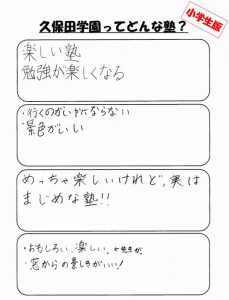 久保田学園ってどんな塾？
小学生版
楽しい塾
勉強が楽しくなる
・行くのがいやにならない
・景色がいい
めっちゃ楽しいけれど、実は
まじめな塾!!
・おもしろい、楽しい。←先生が
・窓からの景色がいい！